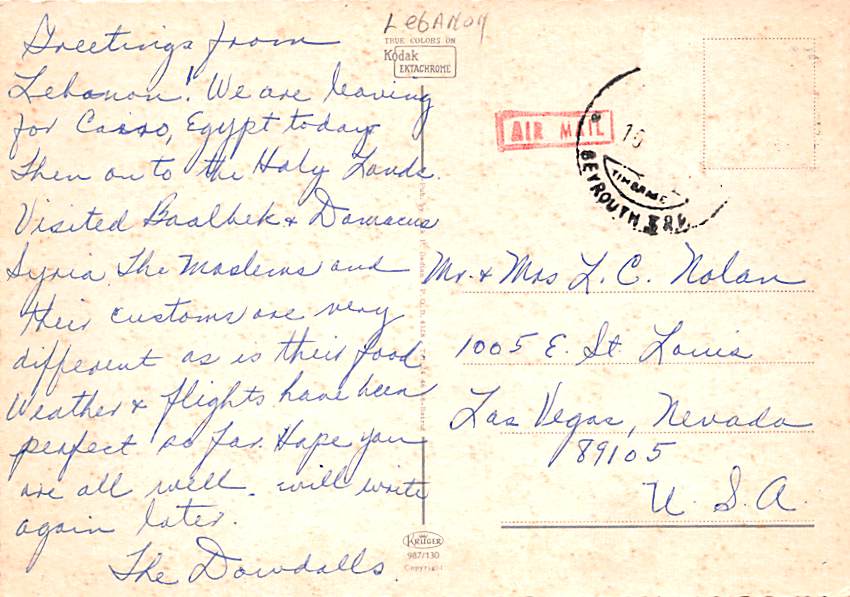 Lebanon
TRUE COLORS ON
Kodak
EKTACHROME
Greetings from
Lebanon! We are leaving
for Cairo, Egypt today
Then on to the Holy Lands.
Visited Baalbek & Damascus
Syria. The Moslems and
their customs are very
different as is their food
Weather & flights have been
perfect so far. Hope you
are all well. will write
again later.
The Dowdalls.
AIR MAIL
BEYROUTH
Mr. & Mrs L. C. Nolan
1005 E. St. Louis
Las Vegas, Nevada
89105
U. S. A.
KRÜGER
987/130
Copyright